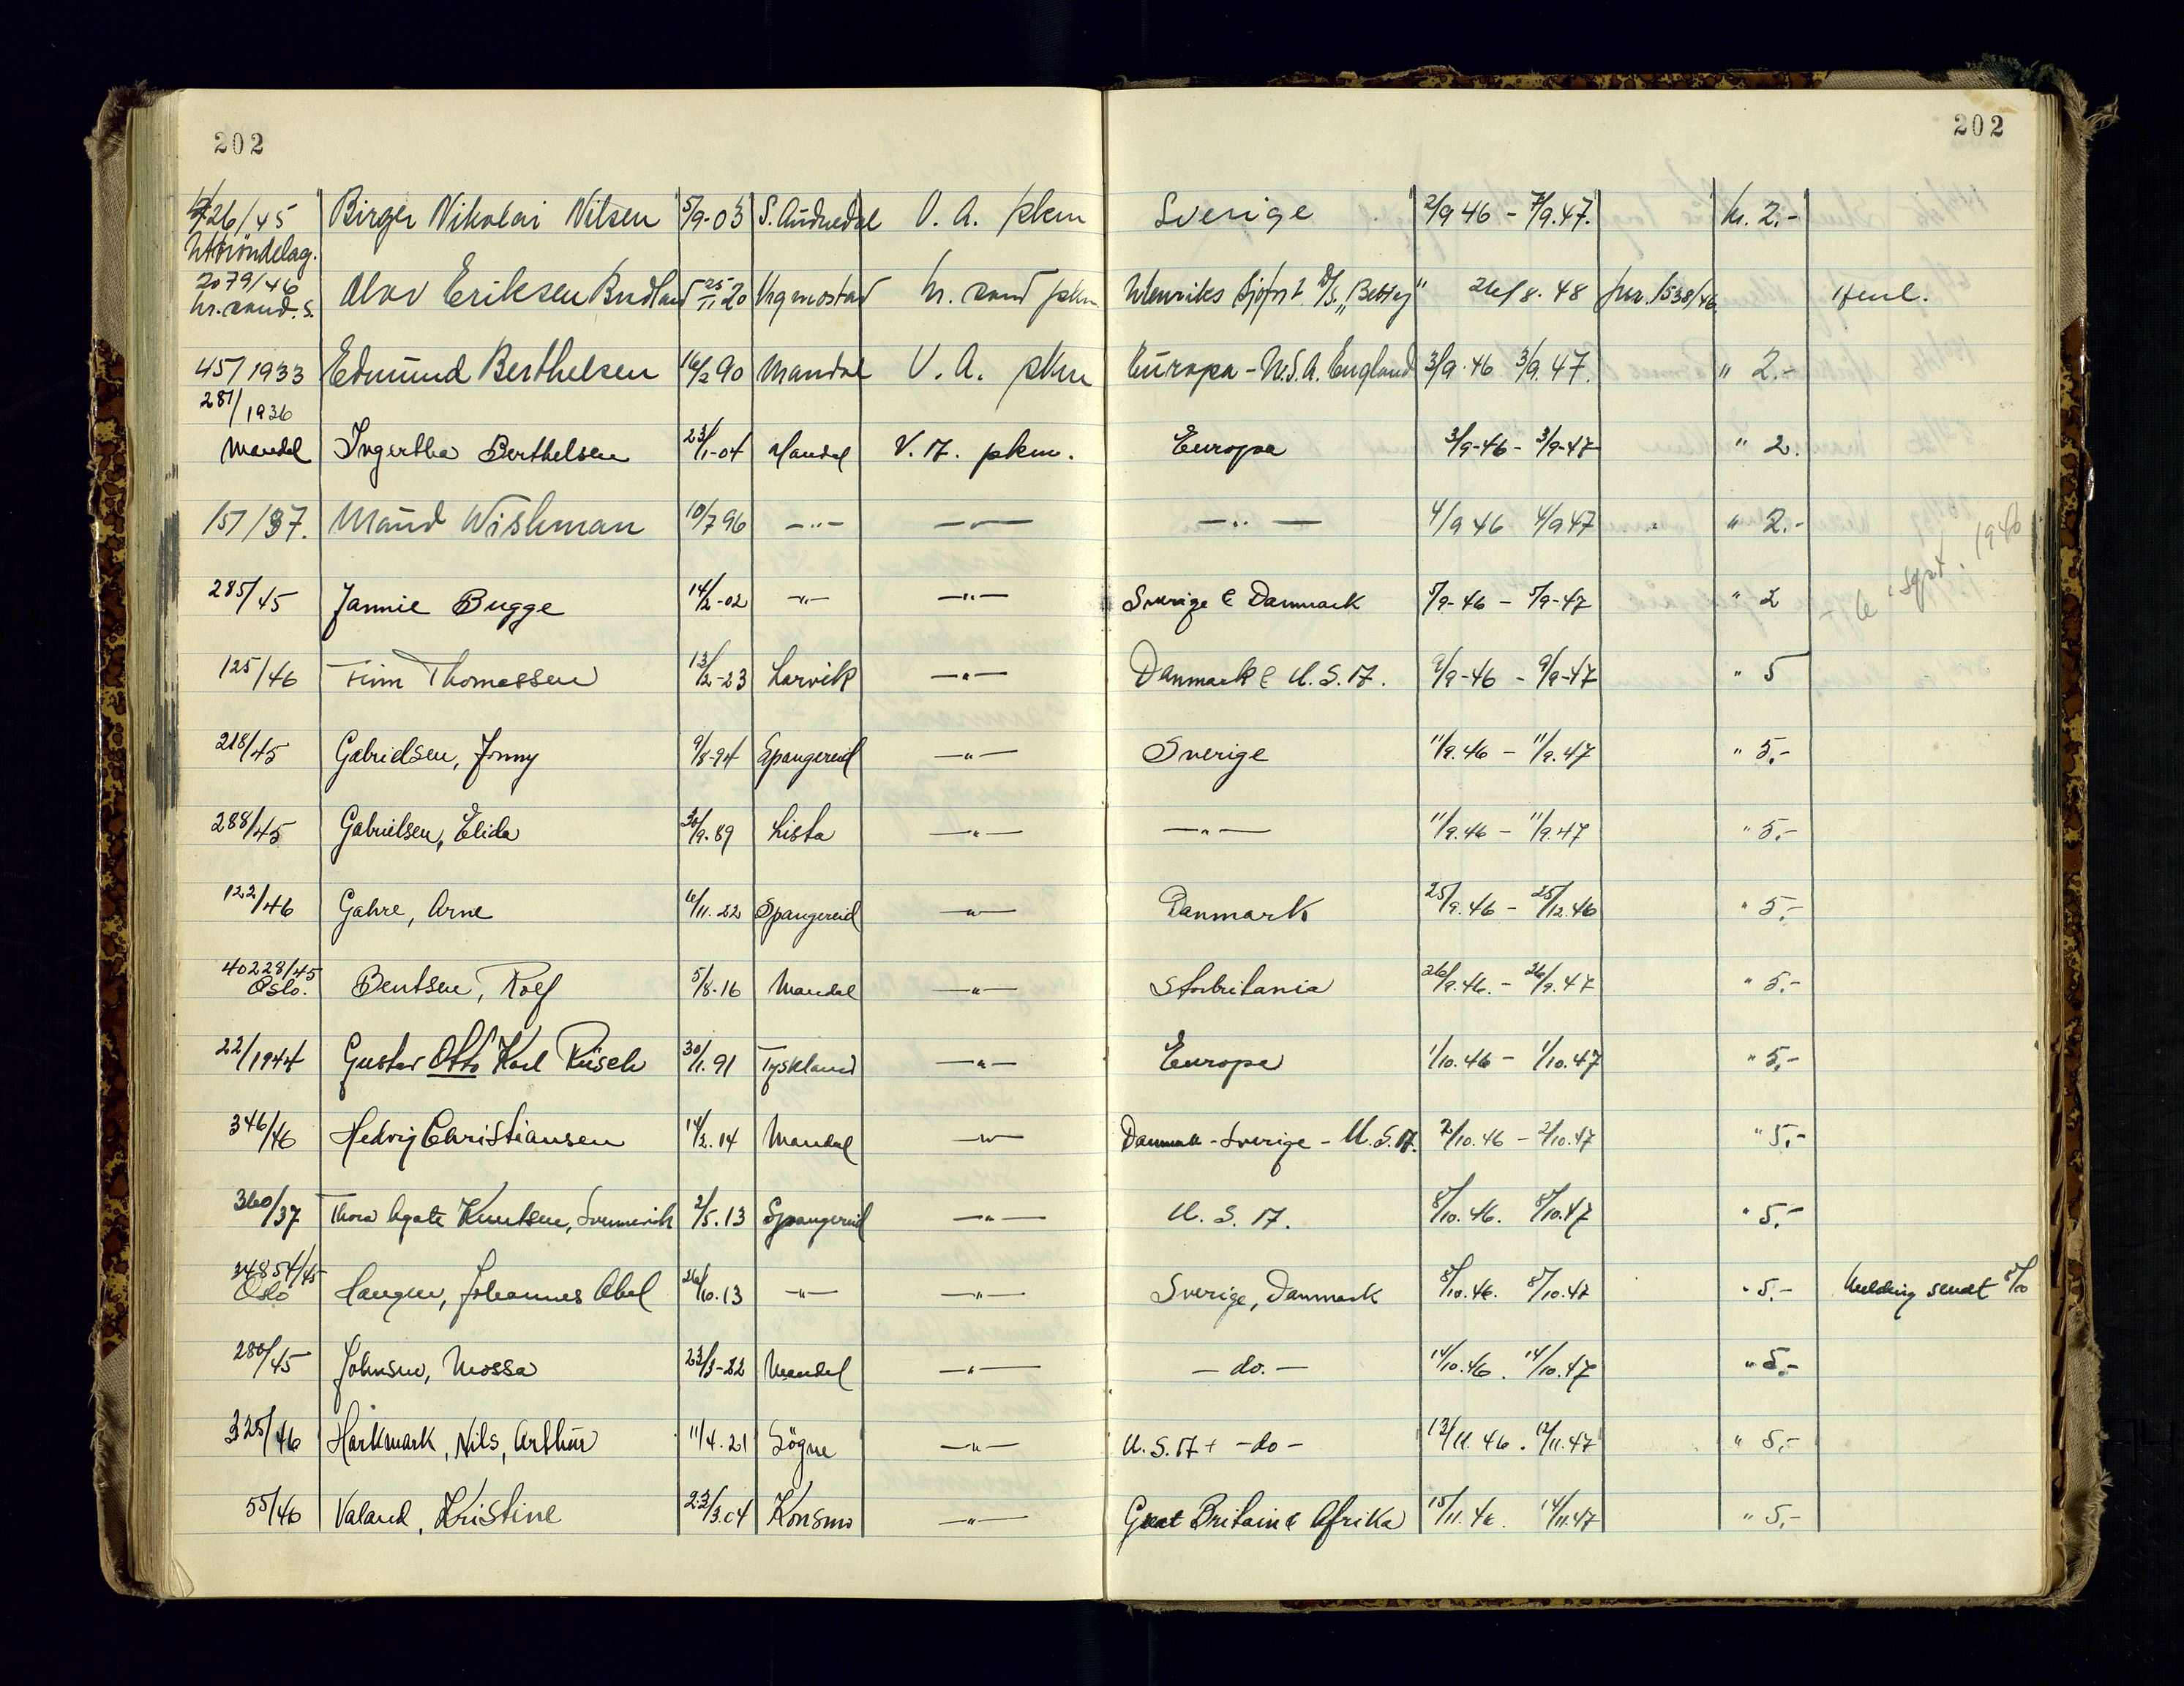 202
202
26/45 Birger Nikolai Nilsen 5/9-03 S. Audnedal V. A. pkm Sverige 2/9 46 - 7/9. 47. kr. 2.-
2079/46 Eriksen 20 kr. sand pkm 26/8. 48 1538/46
kr. sand. S.
45/1933 Edmund Berthelsen 16/2 90 Mandal V. A. pkm Europa - U.S.A. England 3/9. 46 3/9. 47. " 2.-
281/1936
Mandal Ingertha Berthelsen 23/1-04 Mandal V. A. pkm. Europa 3/9-46 - 3/9-47 " 2.
151/37. Maud Wishman 10/7 96 -"- -"- -"- 4/9 46 4/9 47 " 2.-
285/45 Jannie Bugge 14/2-02 -"- -"- Sverige & Danmark 5/9-46 - 5/9-47 " 2
Sept. 1946
125/46 Finn Thomassen 13/2-23 Larvik -"- Danmark & U. S. A. 9/9-46 - 9/9-47 " 5
218/45 Gabrielsen, Jonny 9/8-94 Spangereid -"- Sverige 11/9. 46 - 11/9. 47 " 5.-
288/45 Gabrielsen, Elida 30/9. 89 Lista -"- -"- 11/9. 46 - 11/9. 47 " 5.-
122/46 Gahre, Arne 6/11. 22 Spangereid -"- Danmark 25/9. 46 - 25/12. 46 " 5.-
40228/45
Oslo. Bentsen, Rolf 5/8. 16 Mandal -"- Storbritania 26/9. 46. - 26/9. 47 " 5.-
22/1944 Gustav Otto Karl Rüsch 30/1. 91 Tyskland -"- Europa 1/10. 46 - 1/10. 47 " 5.-
346/46 Hedvig Christiansen 14/2. 14 Mandal -"- Danmark - Sverige - U. S. A. 2/10. 46 - 2/10. 47 " 5.-
360/37 Thora Agate Knutsen, 2/5. 13 Spangereid -"- U. S. A. 8/10. 46. 8/10. 47 " 5.-
34854/45
Oslo Haugen, Johannes Abel 26/10. 13 -"- -"- Sverige, Danmark 8/10. 46. 8/10. 47 " 5.- Melding sendt 8/10
280/45 Johnsen, Mossa 23/3-22 Mandal -"- - do. - 14/10. 46. 14/10. 47 " 5.-
325/46 Harkmark, Nils, Arthur 11/4. 21 Sögne -"- U. S. A + - do - 12/11. 46. 12/11. 47 " 5.-
55/46 Valand, Kristine 23/3. 04 Konsmo -"- Great Britain & Afrika 15/11. 46. 14/11. 47 " 5.-